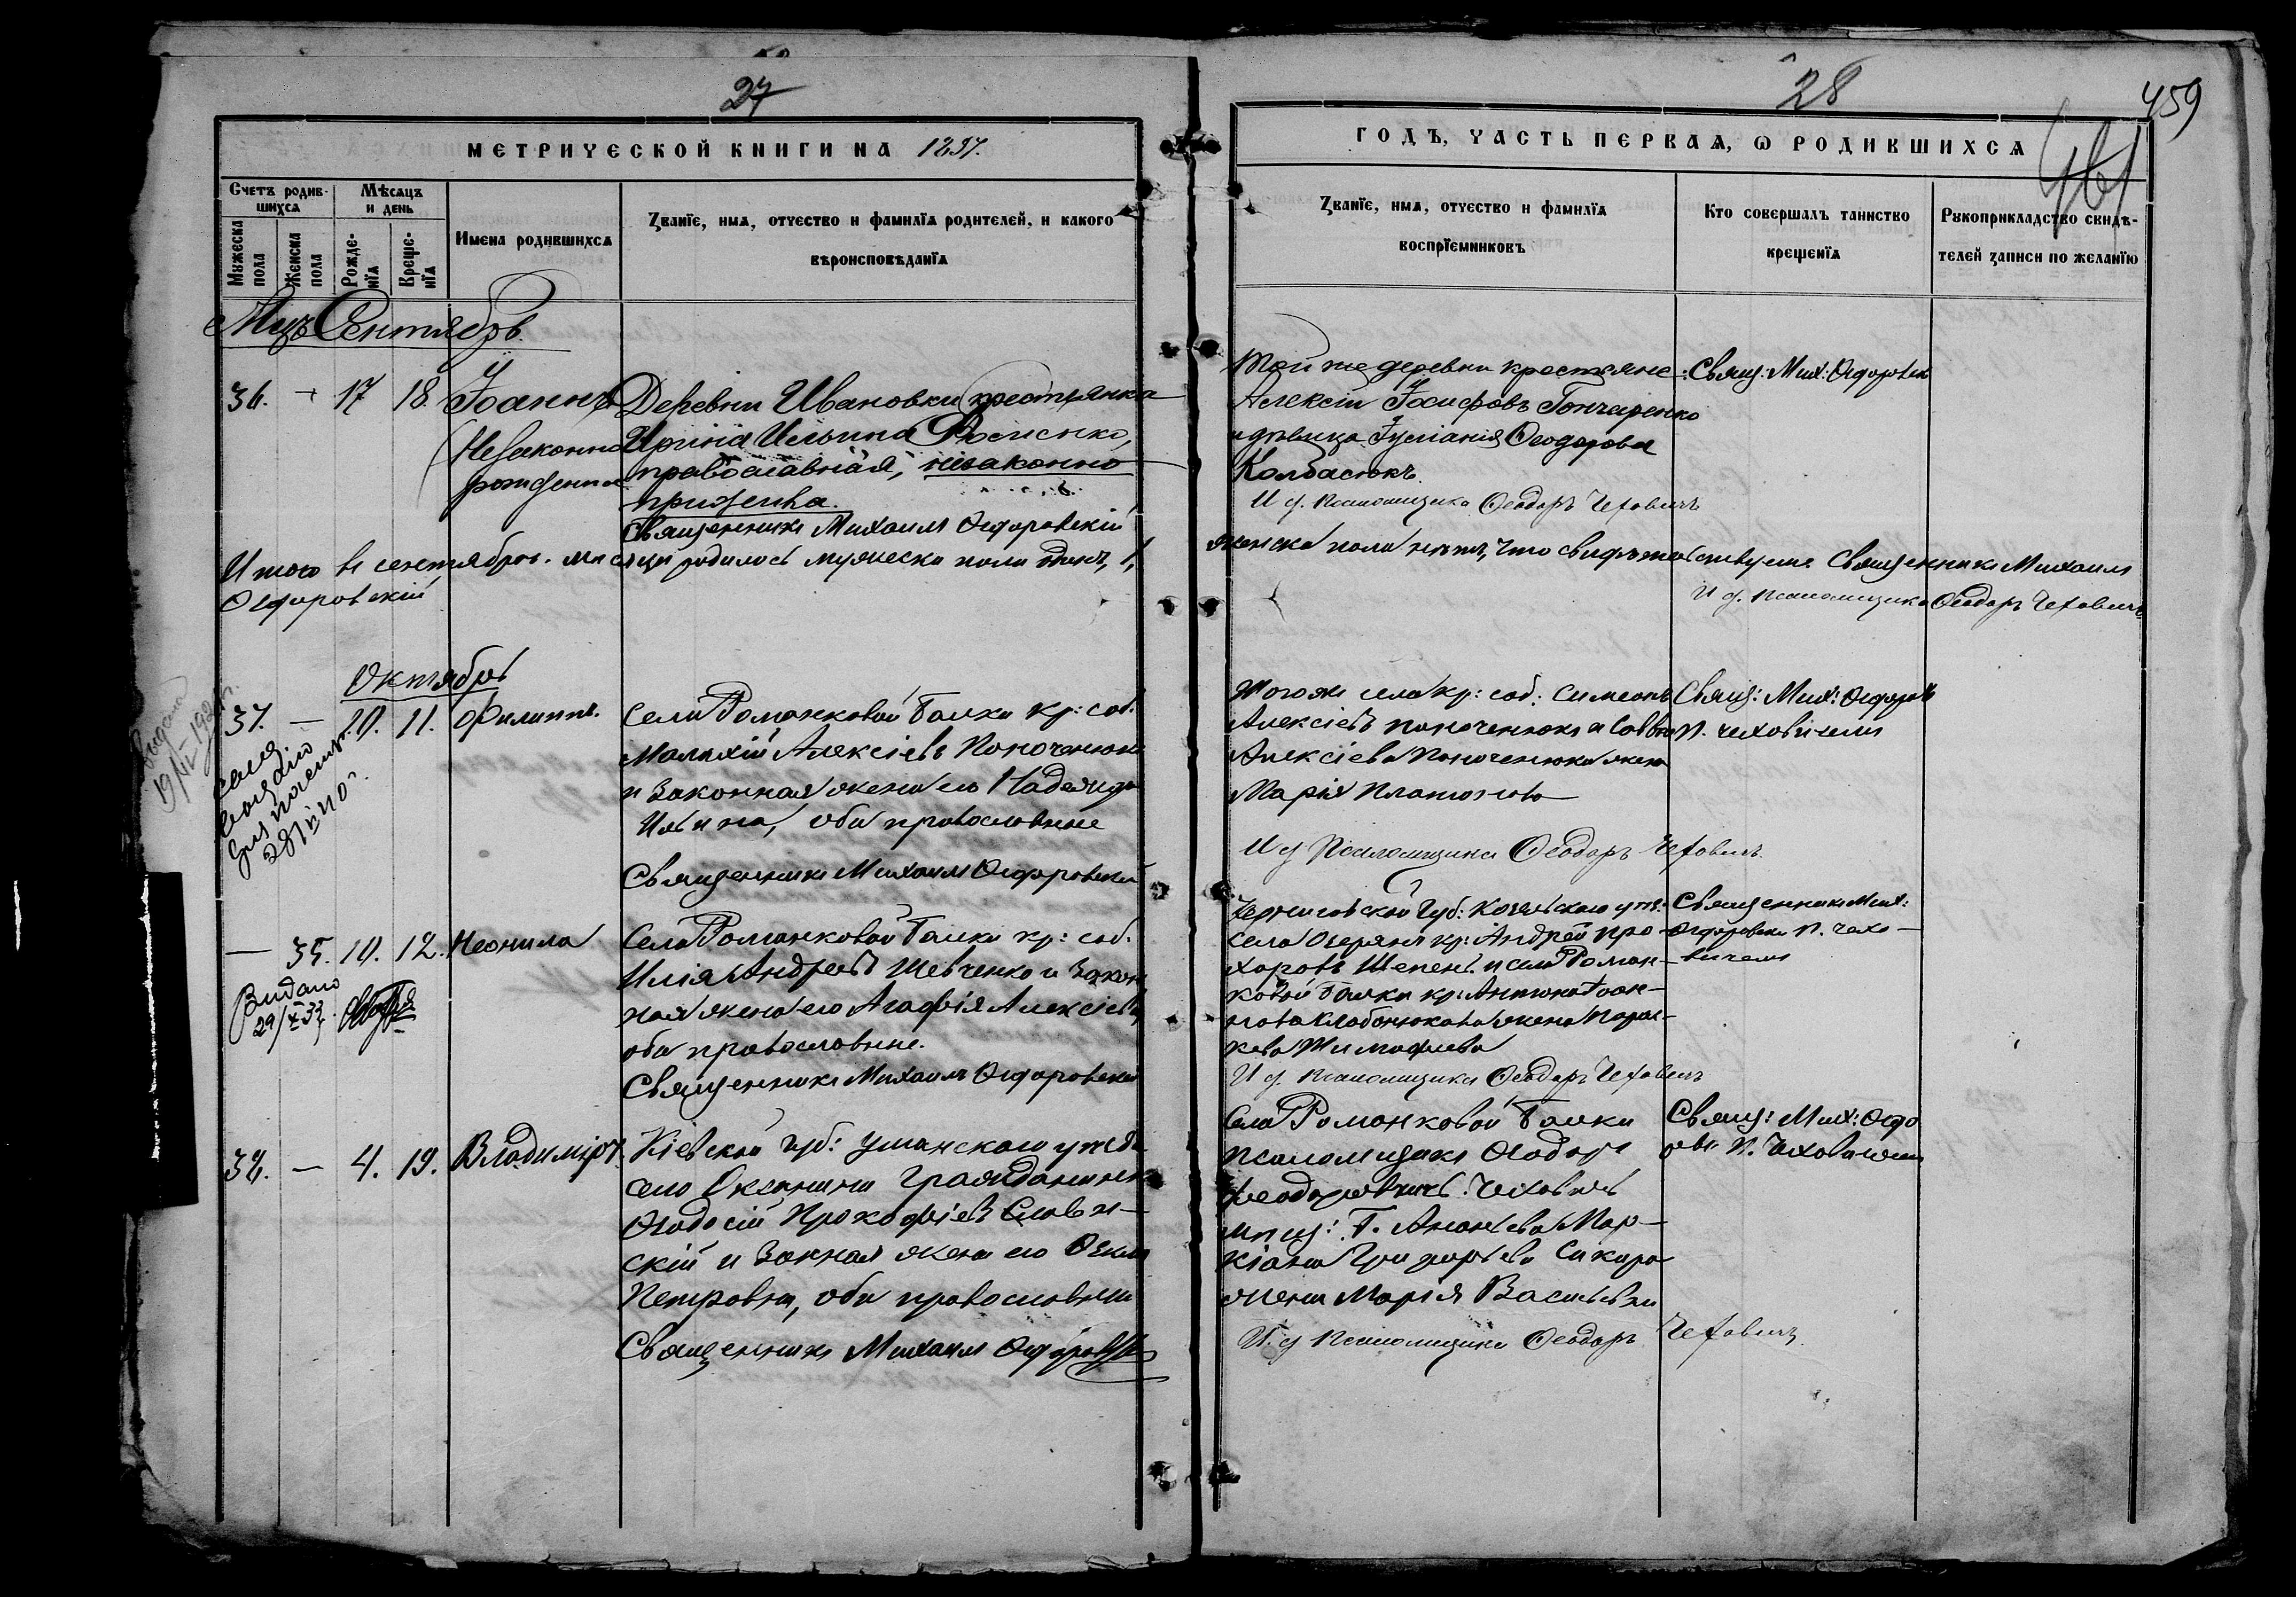 27
МЕТРИЧЕСКОЙ КНИГИ НА 1897.
Счетъ родившихся
Мѣсяцъ и день
Мужеска пола
Женска пола
Рожденїя
Крещенїя
Имена родившихся
Званїе, имя, отчество и фамилїя родителей, и какого
вѣроисповѣданїя
Мцъ Сентябрь.
36. – 17 18. Іоаннъ
(Незаконно
рожденный
Деревни Ивановки крестьянка
Ирина Ильина
православная, незаконно
прижила.
Священникъ Михаилъ
Итого въ сентябрѣ мѣсяцѣ родилось мужеска пола одинъ, 1,
Октябрь
37. – 10. 11. Филиппъ.
Села Романковой Балки кр: соб.
Малахій Алексіевъ
и законная жена его Надежда
Ильина, оба православные
Священникъ Михаилъ
– 35. 10. 12. Неонила
Видано
29/X 33
Села Романковой Балки кр: соб.
Илія Андреевъ Шевченко и закон
ная жена его Агафія Алексіева,
оба православные.
Священникъ Михаилъ
38. – 4. 19. Владиміръ.
Кіевской губ: Уманскаго уѣзда
село Оксанина гражданинъ
Ѳеодосій Прокофіевъ
скій и закная жена его
Петровна, оба православные
Священникъ Михаилъ
28
459
461
ГОДЪ, ЧАСТЬ ПЕРВАЯ, Ѡ РОДИВШИХСЯ
Званїе, имя, отчество и фамилїя
воспрїемниковъ
Кто совершалъ таинство
крещенїя
Рукоприкладство свидѣ-
телей записи по желанїю
Той же деревни крестьяне
Алексій Іосифовъ Гончаренко
и дѣвица Іуліанія Ѳеодорова
Колбасюкъ.
И д. Псаломщика Ѳеодоръ Чеховичъ
Свящ: Мих:
женска пола нѣтъ, что свидѣтельствуемъ Священникъ Михаилъ
И д. Псаломщика Ѳеодоръ Чеховичъ
Того же села кр: соб: Симеонъ
Алексіевъ и Саввы
Алексіева жена
Марія Платонова
И д Псаломщика Ѳеодоръ Чеховичъ.
Свящ: Мих:
п. Чеховичемъ
Черниговской Губ: Козельскаго уѣз:
села Озерянъ кр: Андрей Про-
хоровъ и села Роман-
ковой Балки кр: Антона
жена Парас-
кева Тимофеева
И д. Псаломщика Ѳеодоръ Чеховичъ
Священникъ Мих:
п. Чехо-
вичемъ
Села Романковой Балки
псаломщикъ Ѳеодоръ
Феодоровичъ Чеховичъ
мѣщ: Г. Ананьева Мар-
кіана Григорьева
жена Марія Васильева
И. д Псаломщика Ѳеодоръ Чеховичъ.
Свящ: Мих:
п. Чеховичемъ